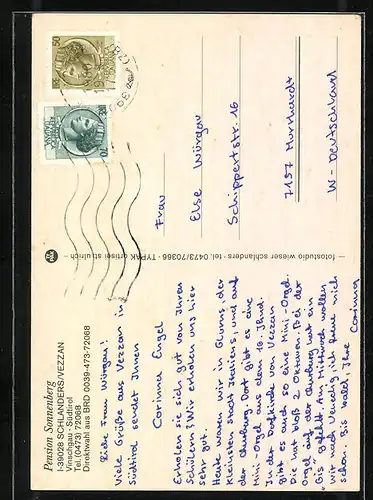 Pension Sonnenberg
I-39028 SCHLANDERS/VEZZAN
Vinschgau - Südtirol
Tel. (0473) 72068
Direktwahl aus BRD 0039-473-72068
Liebe Frau Würgau!
Viele Grüße aus Vezzan in
Südtirol sendet Ihnen
Corinna Engel
Erholen sie sich gut von Ihren
Schülern? Wir erholen uns hier
sehr gut.
Heute waren wir in Glurns der
kleinsten Stadt Italiens, und auf
der Churburg. Dort gibt es eine
Mini-Orgel aus dem 16. Jhnd.
In der Dorfkirche von Vezzan
gibt es auch so eine Mini-Orgel.
Die hat bloß 2 Oktaven. Bei der
Orgel auf der Churburg hat ein
Gis gefehlt. Am Mittwoch wollen
wir nach Venedig, ich freue mich
schon. Bis bald, Ihre Corinna
fotostudio wieser schlanders - tel. 0473/70366 - TYPAK ortisei st. ulrich
Frau
Else Würgau
Schippertstr. 16
7157 Murrhardt
W-Deutschland